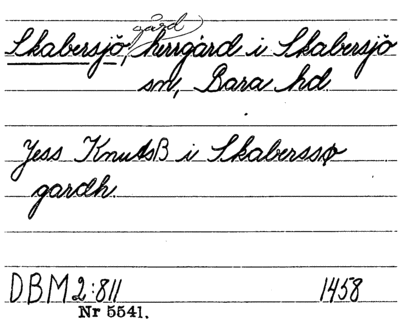 gård
Skabersjö, herrgård i Skabersjö
sn, Bara hd
Jess KnutsB i Skaberssø
gardh.
DBM 2:811 1458
Nr 5541.